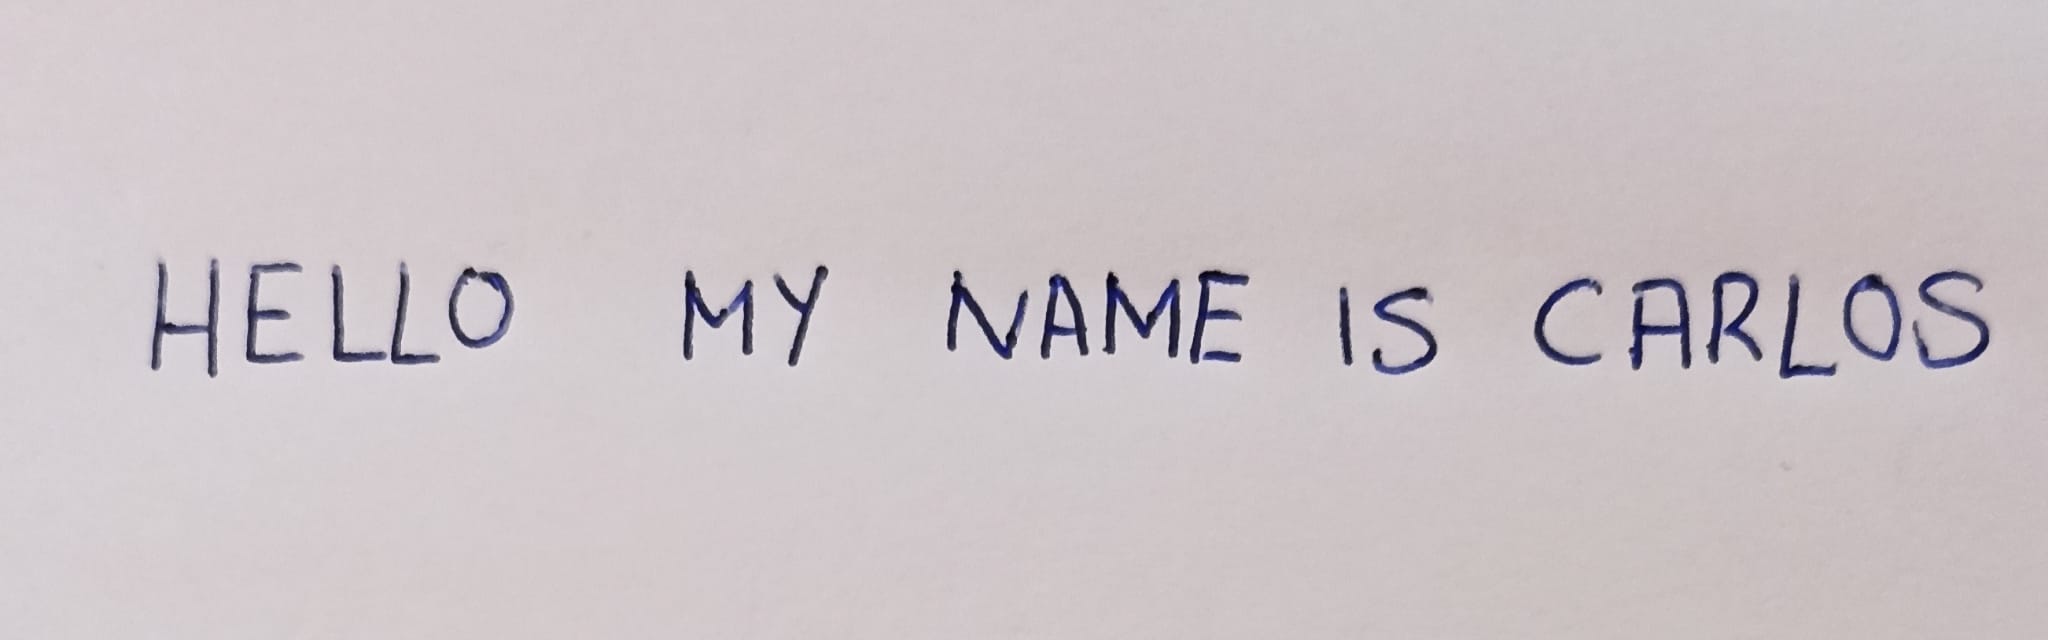 HELLO MY NAME IS CARLOS